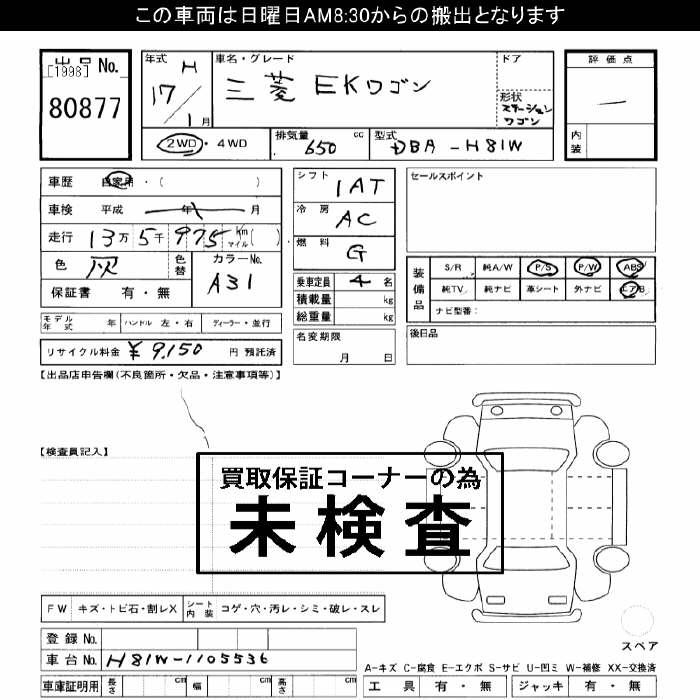 この車両は日曜日AM8:30からの搬出となります
出品
[1998] No.
80877
年式 H
17/1月
車名・グレード
三菱 EKワゴン
ドア
形状
ステーション
ワゴン
評価点
—
内装
2WD・4WD
排気量 650 cc
型式 DBA-H81W
車歴 自家用・( )
車検 平成 年 月
走行 13万5千975 km マイル( )
色 灰
色替
カラーNo.
A31
保証書 有・無
シフト
1AT
冷房
AC
燃料
G
乗車定員 4 名
積載量 kg
総重量 kg
名変期限
月 日
セールスポイント
装備品
S/R 純A/W P/S P/W ABS
純TV 純ナビ 革シート 外ナビ エアB
ナビ型番:
後日品
モデル年式 年 ハンドル 左・右 ディーラー・並行
リサイクル料金 ¥9,150 円 預託済
【出品店申告欄(不良箇所・欠品・注意事項等)】
【検査員記入】
買取保証コーナーの為
未検査
FW キズ・トビ石・割レX シート内装 コゲ・穴・汚レ・シミ・破レ・スレ
スペア
登録No.
車台No. H81W-1105536
車庫証明用 長さ cm 幅 cm 高さ cm
A-キズ C-腐食 E-エクボ S-サビ U-凹ミ W-補修 XX-交換済
工具 有・無 ジャッキ 有・無